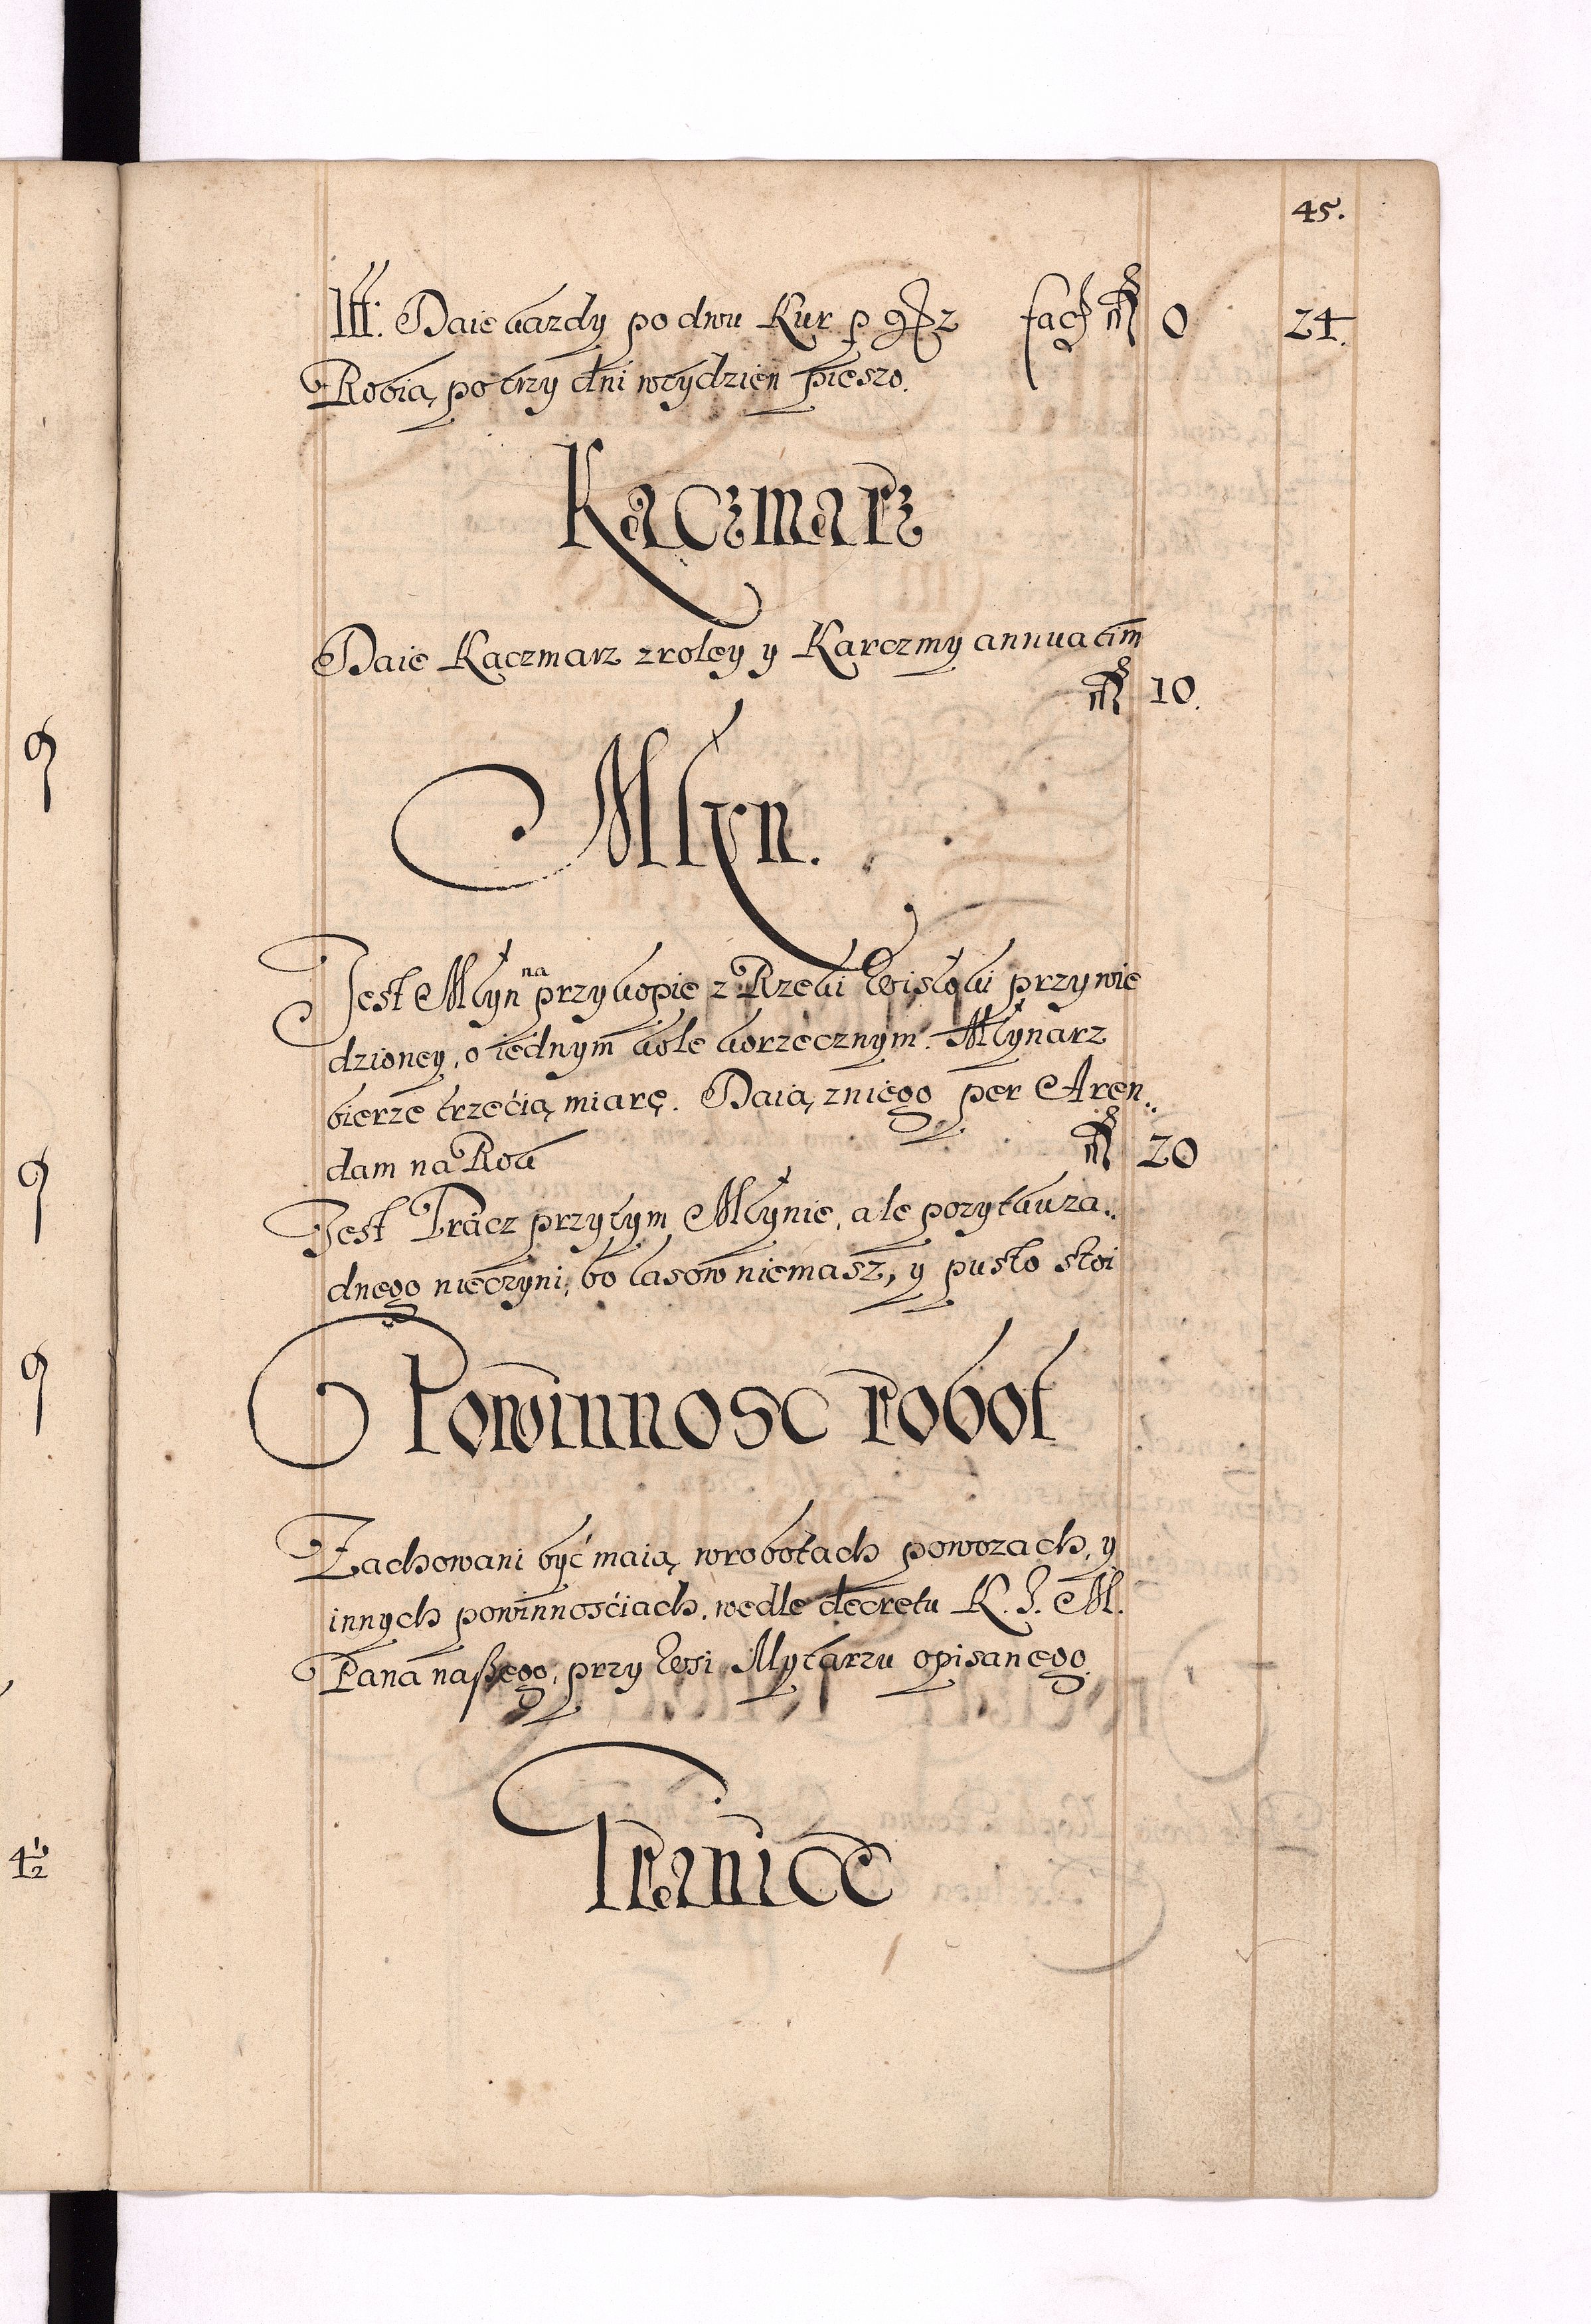 45.
Itt: Daie kazdy po dwu Kur p gr z facit fl 0 24.
Robią po trzy dni w tydzien pieszo.
Kaczmarz
Daie Kaczmarz z roley y Karczmy annuatim
fl 10.
Młyn.
Jest Młyn na przykopie z Rzeki Wisłoki przywie
dzioney, o iednym kole korzecznym. Młynarz
bierze trzećią miarę. Daią z niego per Aren..
dam na Rok fl 20
Jest Tracz przy tym Młynie, ale pozytku za..
dnego nieczyni, bo lasow niemasz, y pusto stoi
Powinnosc robot
Zachowani być maią w robotach powozach, y
innych powinnosćiach, wedle decretu K. J. M.
Pana naszego, przy Wsi Mytarzu opisanego.
Granice
4 1/2